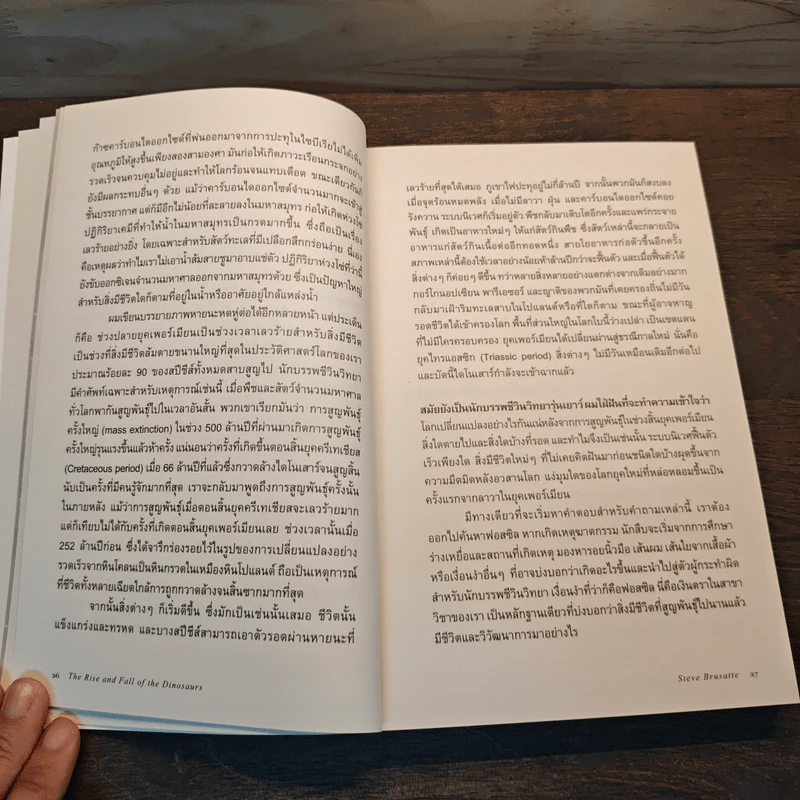 ก๊าซคาร์บอนไดออกไซด์ที่พ่นออกมาจากการปะทุในไซบีเรียไม่ได้เพิ่ม
อุณหภูมิให้สูงขึ้นเพียงสองสามองศา มันก่อให้เกิดภาวะเรือนกระจกอย่าง
รวดเร็วจนควบคุมไม่อยู่และทำให้โลกร้อนจนแทบเดือด ขณะเดียวกันก็
ยังมีผลกระทบอื่นๆ ด้วย แม้ว่าคาร์บอนไดออกไซด์จำนวนมากจะเข้าสู่
ชั้นบรรยากาศ แต่ก็มีอีกไม่น้อยที่ละลายลงในมหาสมุทร ก่อให้เกิดห่วงโซ่
ปฏิกิริยาเคมีที่ทำให้น้ำในมหาสมุทรเป็นกรดมากขึ้น ซึ่งถือเป็นเรื่อง
เลวร้ายอย่างยิ่ง โดยเฉพาะสำหรับสัตว์ทะเลที่มีเปลือกสึกกร่อนง่าย นี่เอง
คือเหตุผลว่าทำไมเราไม่เอาน้ำส้มสายชูมาอาบแช่ตัว ปฏิกิริยาห่วงโซ่ที่ว่านี้
ยังขับออกซิเจนจำนวนมหาศาลออกจากมหาสมุทรด้วย ซึ่งเป็นปัญหาใหญ่
สำหรับสิ่งมีชีวิตใดก็ตามที่อยู่ในน้ำหรืออาศัยอยู่ใกล้แหล่งน้ำ
ผมเขียนบรรยายภาพหายนะหดหู่ต่อได้อีกหลายหน้า แต่ประเด็น
ก็คือ ช่วงปลายยุคเพอร์เมียนเป็นช่วงเวลาเลวร้ายสำหรับสิ่งมีชีวิต
เป็นช่วงที่สิ่งมีชีวิตล้มตายขนานใหญ่ที่สุดในประวัติศาสตร์โลกของเรา
ประมาณร้อยละ 90 ของสปีชีส์ทั้งหมดสาบสูญไป นักบรรพชีวินวิทยา
มีคำศัพท์เฉพาะสำหรับเหตุการณ์เช่นนี้ เมื่อพืชและสัตว์จำนวนมหาศาล
ทั่วโลกพากันสูญพันธุ์ไปในเวลาอันสั้น พวกเขาเรียกมันว่า การสูญพันธุ์
ครั้งใหญ่ (mass extinction) ในช่วง 500 ล้านปีที่ผ่านมาเกิดการสูญพันธุ์
ครั้งใหญ่รุนแรงขึ้นแล้วห้าครั้ง แน่นอนว่าครั้งที่เกิดขึ้นตอนสิ้นยุคครีเทเชียส
(Cretaceous period) เมื่อ 66 ล้านปีที่แล้วซึ่งกวาดล้างไดโนเสาร์จนสูญสิ้น
นับเป็นครั้งที่มีคนรู้จักมากที่สุด เราจะกลับมาพูดถึงการสูญพันธุ์ครั้งนั้น
ในภายหลัง แม้ว่าการสูญพันธุ์เมื่อตอนสิ้นยุคครีเทเชียสจะเลวร้ายมาก
แต่ก็เทียบไม่ได้กับครั้งที่เกิดตอนสิ้นยุคเพอร์เมียนเลย ช่วงเวลานั้นเมื่อ
252 ล้านปีก่อน ซึ่งได้จารึกร่องรอยไว้ในรูปของการเปลี่ยนแปลงอย่าง
รวดเร็วจากหินโคลนเป็นหินกรวดในเหมืองหินโปแลนด์ ถือเป็นเหตุการณ์
ที่ชีวิตทั้งหลายเฉียดใกล้การถูกกวาดล้างจนสิ้นซากมากที่สุด
จากนั้นสิ่งต่างๆ ก็เริ่มดีขึ้น ซึ่งมักเป็นเช่นนั้นเสมอ ชีวิตนั้น
แข็งแกร่งและทรหด และบางสปีชีส์สามารถเอาตัวรอดผ่านหายนะที่
26 The Rise and Fall of the Dinosaurs
เลวร้ายที่สุดได้เสมอ ภูเขาไฟปะทุอยู่ไม่กี่ล้านปี จากนั้นพวกมันก็สงบลง
เมื่อจุดร้อนหมดพลัง เมื่อไม่มีลาวา ฝุ่น และคาร์บอนไดออกไซด์คอย
รังควาน ระบบนิเวศก็เริ่มอยู่ตัว พืชกลับมาเติบโตอีกครั้งและแพร่กระจาย
พันธุ์ เกิดเป็นอาหารใหม่ๆ ให้แก่สัตว์กินพืช ซึ่งสัตว์เหล่านี้จะกลายเป็น
อาหารแก่สัตว์กินเนื้อต่ออีกทอดหนึ่ง สายใยอาหารก่อตัวขึ้นอีกครั้ง
สภาพเหล่านี้ต้องใช้เวลาอย่างน้อยห้าล้านปีกว่าจะฟื้นตัว และเมื่อฟื้นตัวได้
สิ่งต่างๆ ก็ค่อยๆ ดีขึ้น ทว่าหลายสิ่งหลายอย่างแตกต่างจากเดิมอย่างมาก
กอร์โกนอปเซียน พาริเอซอร์ และญาติของพวกมันที่เคยครองถิ่นไม่มีวัน
กลับมาเฝ้าริมทะเลสาบในโปแลนด์หรือที่ใดก็ตาม ขณะที่ผู้อาจหาญ
รอดชีวิตได้เข้าครองโลก พื้นที่ส่วนใหญ่ในโลกใบนี้ว่างเปล่า เป็นเขตแดน
ที่ไม่มีใครครอบครอง ยุคเพอร์เมียนได้เปลี่ยนผ่านสู่ธรณีกาลใหม่ นั่นคือ
ยุคไทรแอสซิก (Triassic period) สิ่งต่างๆ ไม่มีวันเหมือนเดิมอีกต่อไป
และบัดนี้ไดโนเสาร์กำลังจะเข้าฉากแล้ว
สมัยยังเป็นนักบรรพชีวินวิทยารุ่นเยาว์ ผมใฝ่ฝันที่จะทำความเข้าใจว่า
โลกเปลี่ยนแปลงอย่างไรกันแน่หลังจากการสูญพันธุ์ในช่วงสิ้นยุคเพอร์เมียน
สิ่งใดตายไปและสิ่งใดบ้างที่รอด และทำไมจึงเป็นเช่นนั้น ระบบนิเวศฟื้นตัว
เร็วเพียงใด สิ่งมีชีวิตใหม่ๆ ที่ไม่เคยคิดฝันมาก่อนชนิดใดบ้างผุดขึ้นจาก
ความมืดมิดหลังอวสานโลก แง่มุมใดของโลกยุคใหม่ที่หล่อหลอมขึ้นเป็น
ครั้งแรกจากลาวาในยุคเพอร์เมียน
มีทางเดียวที่จะเริ่มหาคำตอบสำหรับคำถามเหล่านี้ เราต้อง
ออกไปค้นหาฟอสซิล หากเกิดเหตุฆาตกรรม นักสืบจะเริ่มจากการศึกษา
ร่างเหยื่อและสถานที่เกิดเหตุ มองหารอยนิ้วมือ เส้นผม เส้นใยจากเสื้อผ้า
หรือเงื่อนงำอื่นๆ ที่อาจบ่งบอกว่าเกิดอะไรขึ้นและนำไปสู่ตัวผู้กระทำผิด
สำหรับนักบรรพชีวินวิทยา เงื่อนงำที่ว่าก็คือฟอสซิล นี่คือเงินตราในสาขา
วิชาของเรา เป็นหลักฐานเดียวที่บ่งบอกว่าสิ่งมีชีวิตที่สูญพันธุ์ไปนานแล้ว
มีชีวิตและวิวัฒนาการมาอย่างไร
Steve Brusatte 27